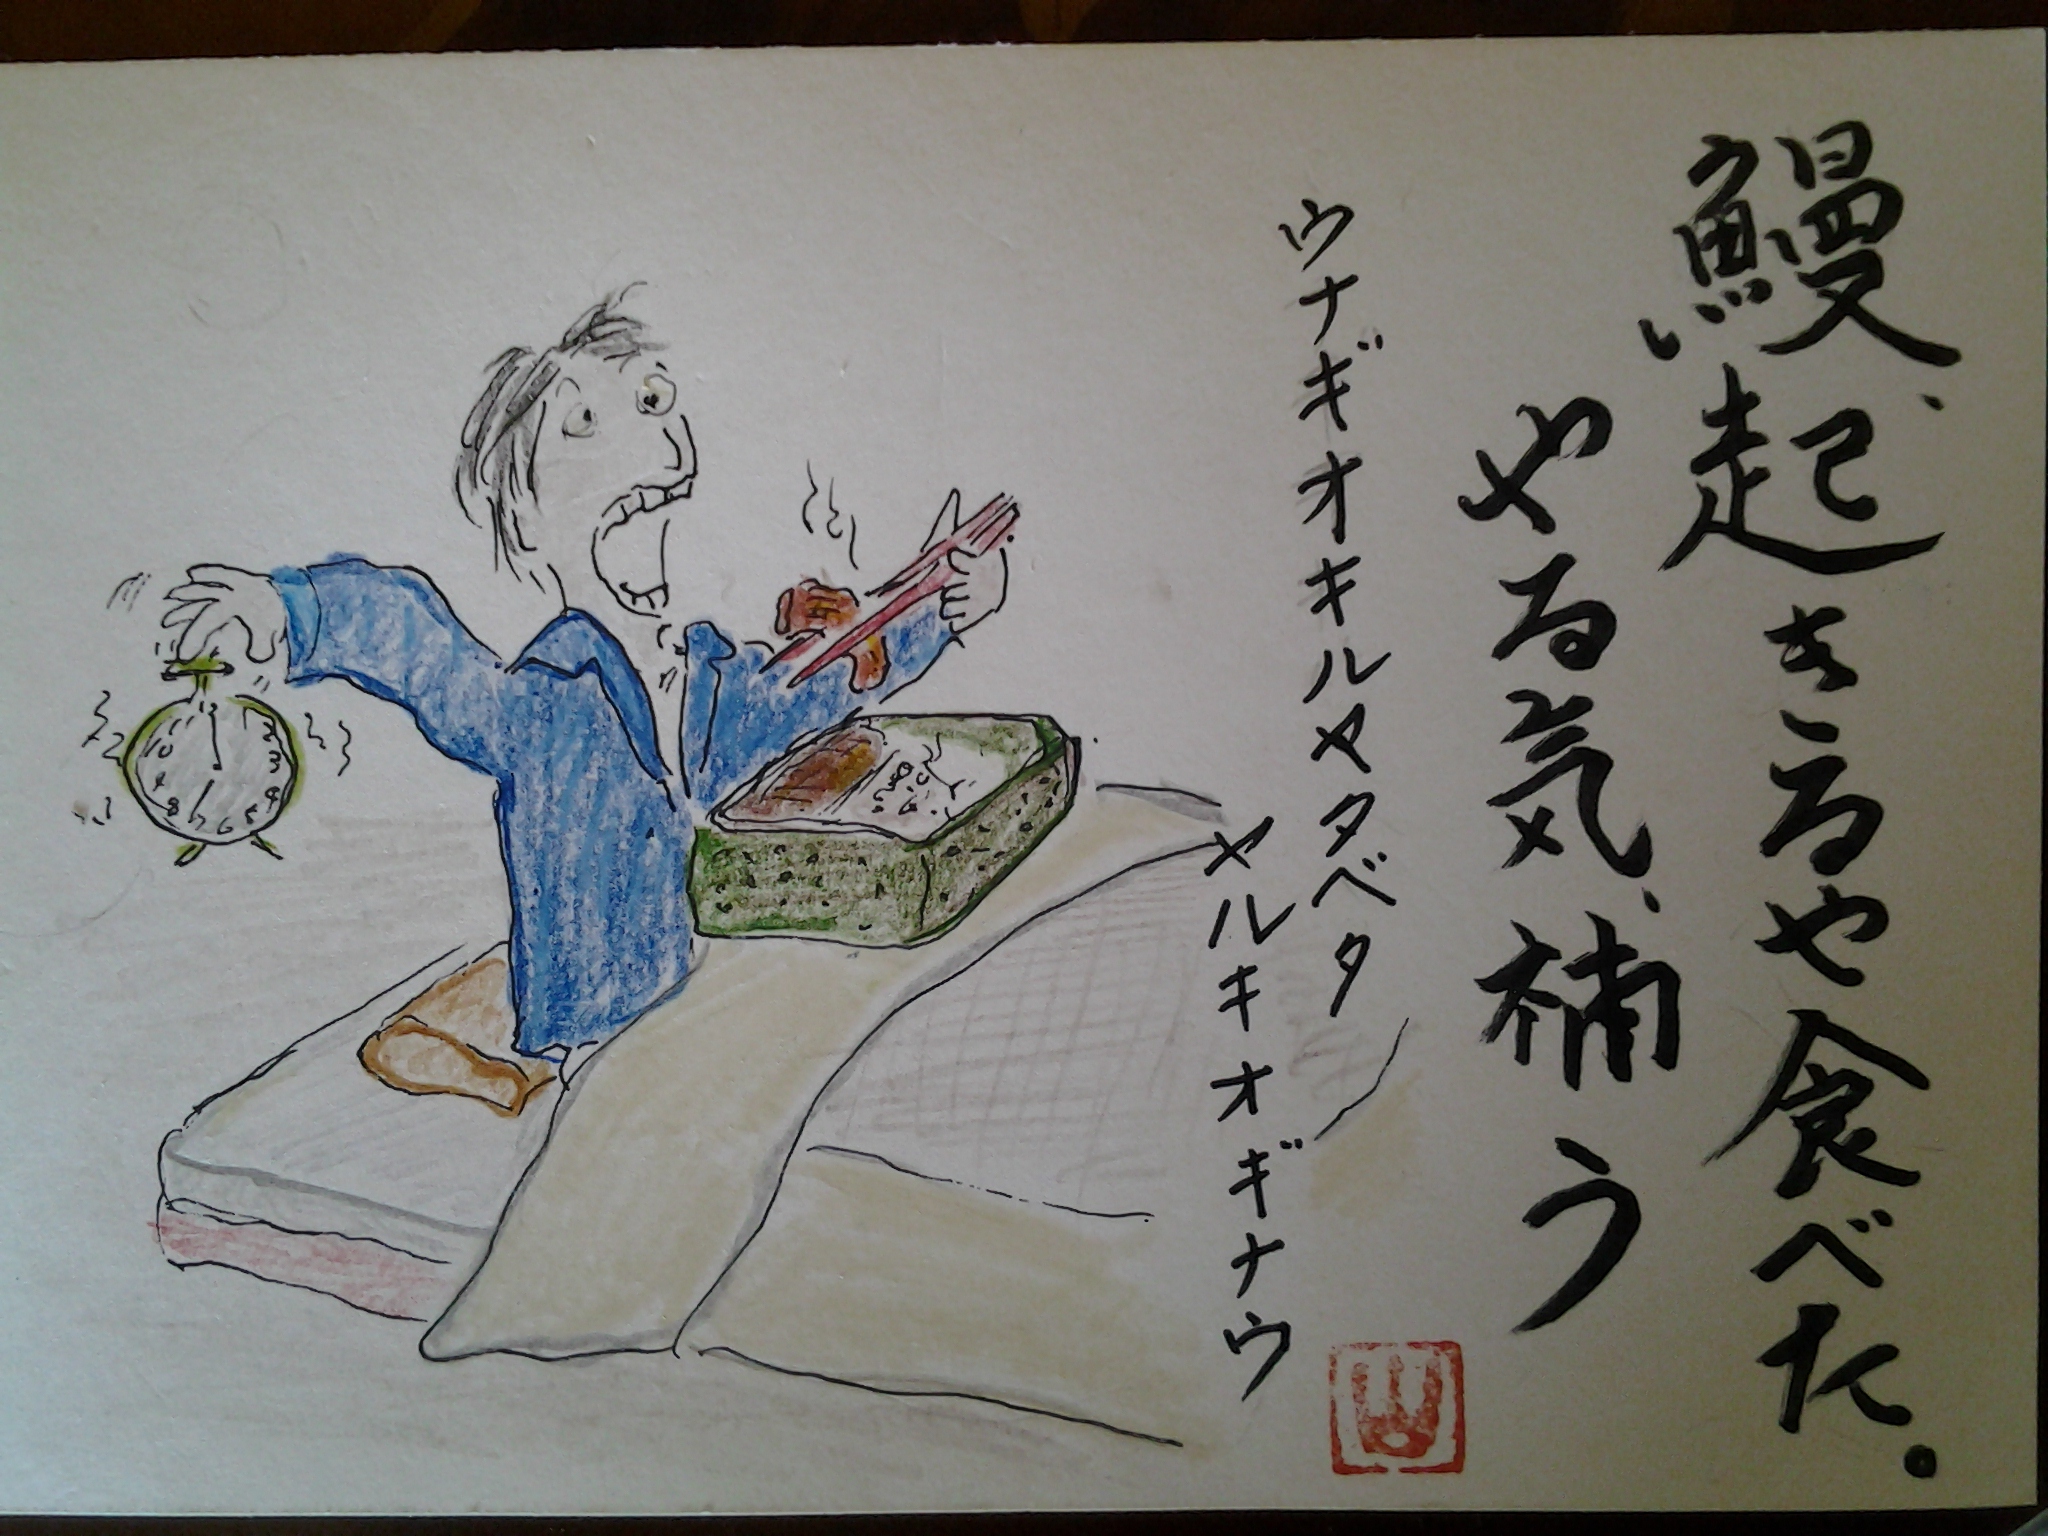 鰻、起きるや食べた。
やる気、補う
ウナギオキルヤタベタ
ヤルキオギナウ